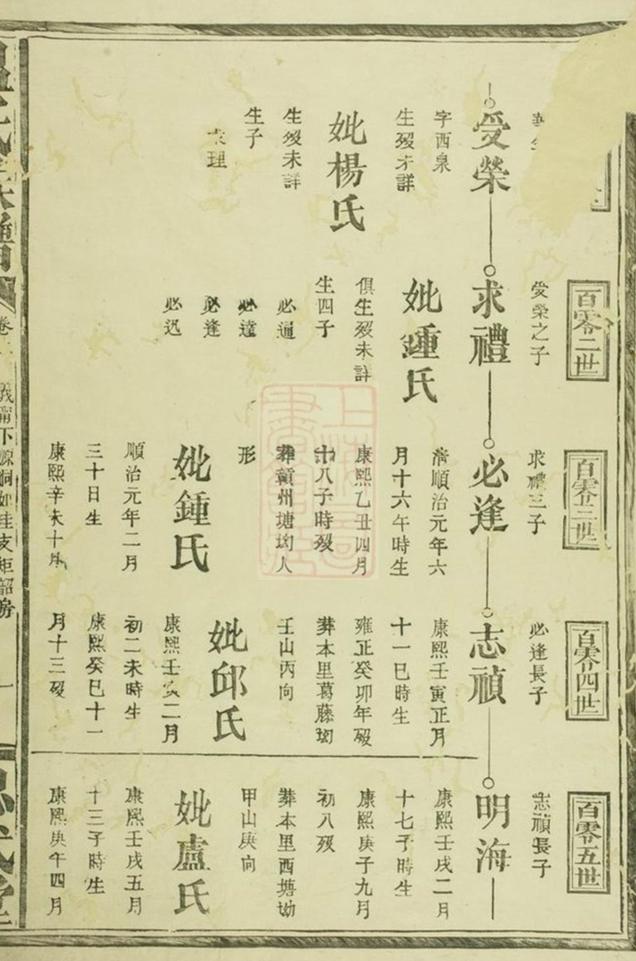 受榮
字西泉
生歿未詳
妣楊氏
生歿未詳
生子
求禮
百零二世
受榮之子
求禮
妣鍾氏
俱生歿未詳
生四子
必通
必達
必逢
必迅
百零三世
求禮三子
必逢
清順治元年六
月十六午時生
康熙乙丑四月
十八子時歿
葬贛州塘坳人
形
妣鍾氏
順治元年二月
三十日生
康熙辛未十月
百零四世
必逢長子
志禎
康熙壬寅正月
十一巳時生
雍正癸卯年歿
葬本里葛藤坳
壬山丙向
妣邱氏
康熙壬亥二月
初二未時生
康熙癸巳十一
月十三歿
百零五世
志禎長子
明海
康熙壬戌二月
十七子時生
康熙庚子九月
初八歿
葬本里西塘坳
甲山庚向
妣盧氏
康熙壬戌五月
十三子時生
康熙庚午四月